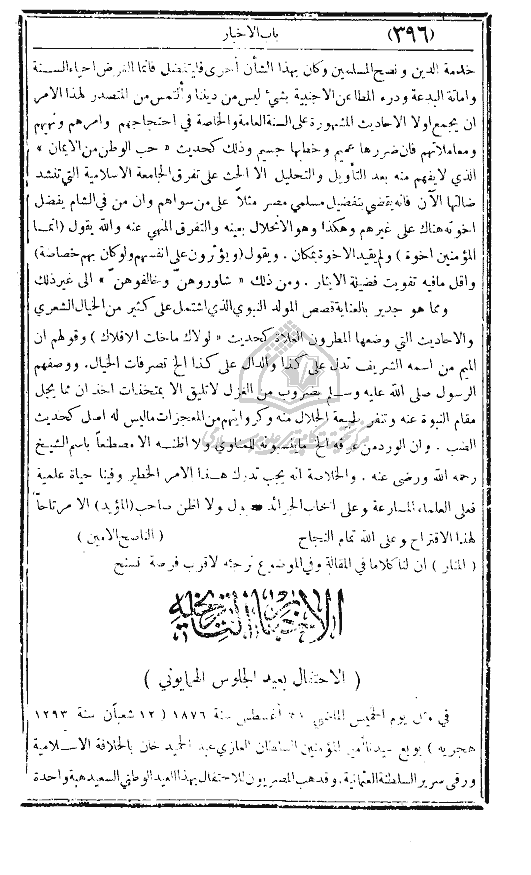 باب الاخبار (٣٩٦)
خدمة الدين ونصح المسلمين وكان بهذا الشأن أحرى فليتفضل فانما الغرض احياء السنة
واماتة البدعة ودرء المطاعن الاجنبية بشيء ليس من ديننا وألتمس من المتصدر لهذا الامر
ان يجمع اولا الاحاديث المشهورة على ألسنة العامة والخاصة في احتجاجهم وامرهم ونهيهم
ومعاملاتهم فان ضررها عميم وخطبها جسيم وذلك كحديث « حب الوطن من الايمان »
الذي لا يفهم منه بعد التأويل والتحليل الا الحث على تفرق الجامعة الاسلامية التي تنشد
ضالتها الآن فانه يقضي بتفضيل مسلمي مصر مثلاً على من سواهم وان من في الشام يفضل
اخوته هناك على غيرهم وهكذا وهو الانحلال بعينه والتفرق المنهي عنه والله يقول (انما
المؤمنين اخوة ) ولم يقيد الاخوة بمكان . ويقول (ويؤثرون على انفسهم ولو كان بهم خصاصة)
واقل مافيه تفويت فضيلة الايثار . ومن ذلك « شاوروهنّ وخالفوهنّ » الى غير ذلك
ومما هو جدير بالعناية قصص المولد النبوي الذي اشتمل على كثير من الخيال الشعري
والاحاديث التي وضعها المطرون الغلاة كحديث « لولاك ماخلقت الافلاك ) وقولهم ان
الميم من اسمه الشريف تدل على كذا والدال على كذا الخ تصرفات الخيال . ووصفهم
الرسول صلى الله عليه وسلم بضروب من الغزل لا تليق الا بمتخذات اخدان مما يجل
مقام النبوة عنه وتنفر طبيعة الجلال منه وكروايتهم من المعجزات ماليس له اصل كحديث
الضب . وان الورد من عرقه الخ ماينسبونه للمناوي ولا اظنه الا مصطنعاً باسم الشيخ
رحمه الله ورضي عنه . والخلاصة انه يجب تدارك هذا الامر الخطير وفينا حياة علمية
فعلى العلماء المسارعة وعلى اصحاب الجرائد ول ولا اظن صاحب (المؤيد) الا مرتاحاً
لهذا الاقتراح وعلى الله تمام النجاح ( الناصح الامين )
( المنار ) ان لنا كلاما في المقالة وفي الموضوع نرجئه لاقرب فرصة تسنح
الاخبار التاريخية
( الاحتفال بعيد الجلوس الهمايوني )
في مثل يوم الخميس الماضي ٣١ أغسطس سنة ١٨٧٦ ( ١٢ شعبان سنة ١٢٩٣
هجرية ) بويع سيدنا أمير المؤمنين السلطان الغازي عبد الحميد خان بالخلافة الاسلامية
ورقي سرير السلطنة العثمانية . وقد هب المصريون للاحتفال بهذا العيد الوطني السعيد هبة واحدة